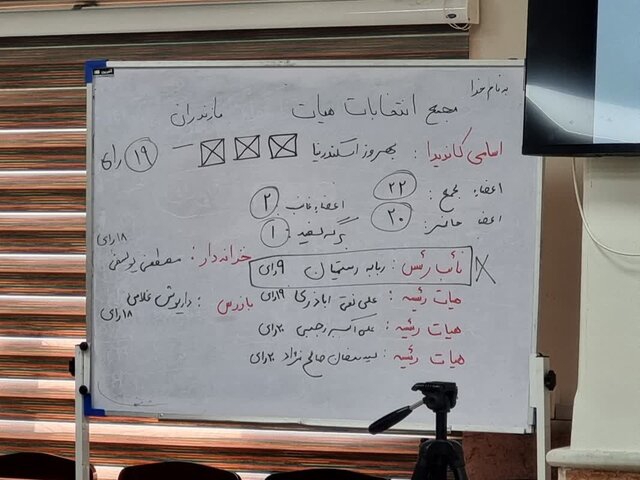 به نام خدا
مجمع انتخابات هیات مازندران
اسامی کاندیدا : بهروز اسکندرنیا — ۱۹ رای
اعضاء مجمع : ۲۲ اعضاء غائب ۲
اعضا حاضر : ۲۰ برگه سفید : ۱
نائب رئیس : ربابه رستمیان ۹ رای
خزانه دار : مصطفی یوسفی ۱۸ رای
هیات رئیسه : علی نقی اباذری ۱۹ رای
بازرس : داریوش غلامی ۱۸ رای
هیات رئیسه : علی اکبر رجبی ۲۰ رای
هیات رئیسه : صالح نژاد ۲۰ رای